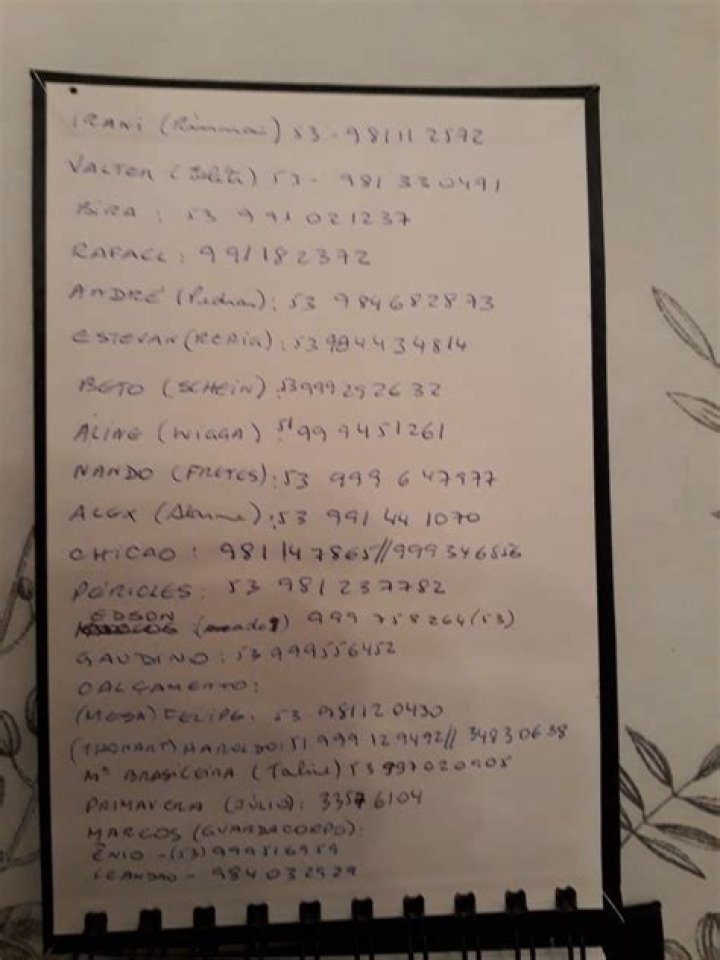 IRANI () 53 - 981112592
VALTER () 53 - 981330491
BIRA : 53 991021237
RAFAEL : 991182372
ANDRÉ () : 53 984682873
ESTEVAN () : 53 984434814
BETO (SCHEIN) : 53 999292632
ALINE (WIGGA) : 51 999451261
NANDO (FRETES) : 53 999647977
ALEX () : 53 991441070
CHICAO : 981147865//999346856
PÉRICLES : 53 981237782
EDSON () 999758264 (53)
GAUDINO : 53 999556452
CALÇAMENTO :
(MOSA) FELIPE : 53 981120430
(THOMART) HAROLDO : 51 999129492// 34830638
Mª BRASILEIRA () 53 997020905
PRIMAVERA (JÚLIO) : 33576104
MARCOS (GUARDACORPO) :
ÊNIO - (53) 999516959
LEANDRO - 984032929